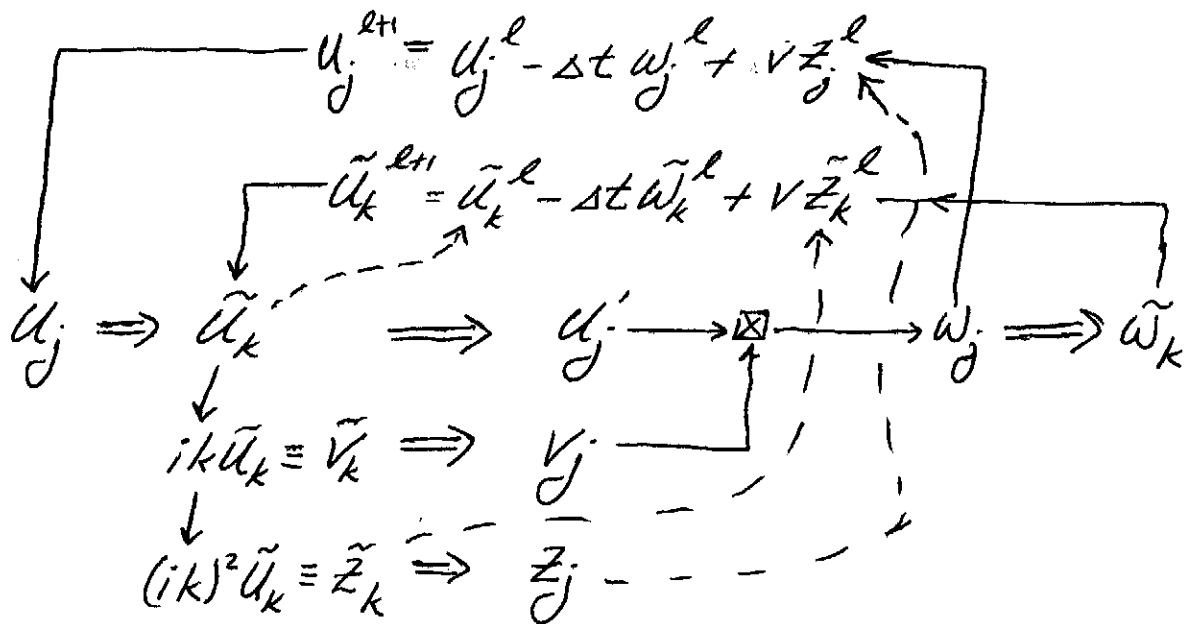 u_j^{l+1} = u_j^l - Δt w_j^l + ν z_j^l
ũ_k^{l+1} = ũ_k^l - Δt w̃_k^l + ν z̃_k^l
u_j ⇒ ũ_k ⇒ u_j' → ⊠ → w_j ⇒ w̃_k
ikũ_k ≡ ṽ_k ⇒ v_j
(ik)²ũ_k ≡ z̃_k ⇒ z_j